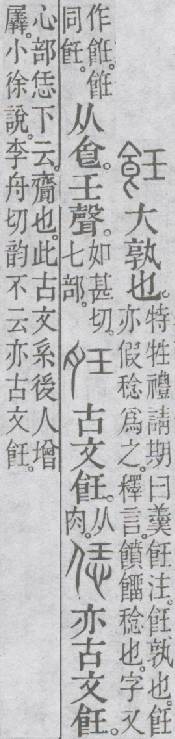 飪 大孰也。特牲禮請期曰羹飪注。飪孰也。飪亦假稔爲之。釋言。饙餾稔也。字又
作餁。餁同飪。从食。壬聲。如甚切。七部。𦚮 古文飪。从肉。恁 亦古文飪。
心部恁下云。齎也。此古文系後人增羼。小徐說。李舟切韵不云亦古文飪。